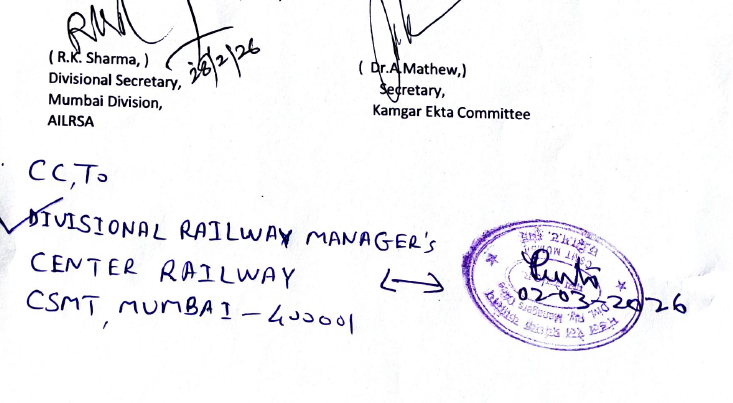 28/2/26
( R.K. Sharma, )
Divisional Secretary,
Mumbai Division,
AILRSA
( Dr.A.Mathew,)
Secretary,
Kamgar Ekta Committee
CC, To
DIVISIONAL RAILWAY MANAGER's
CENTER RAILWAY
CSMT, MUMBAI - 400001
02-03-2026